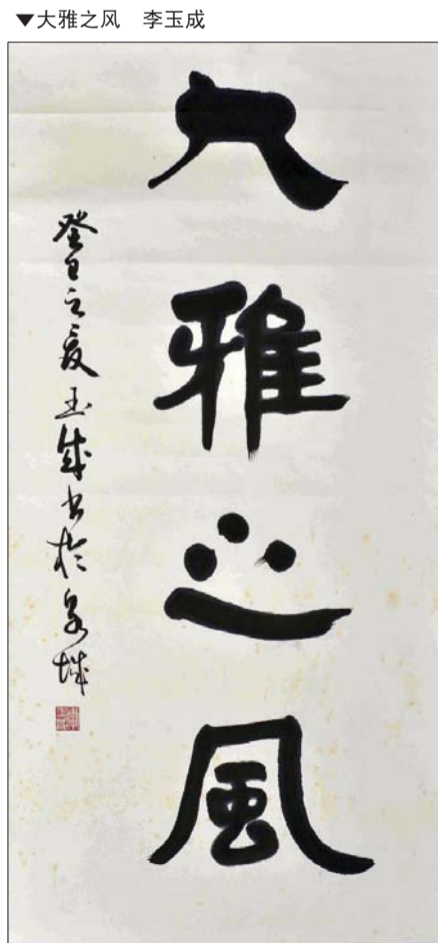 ▼大雅之风 李玉成
大雅之風
癸巳之夏玉成書於泉城